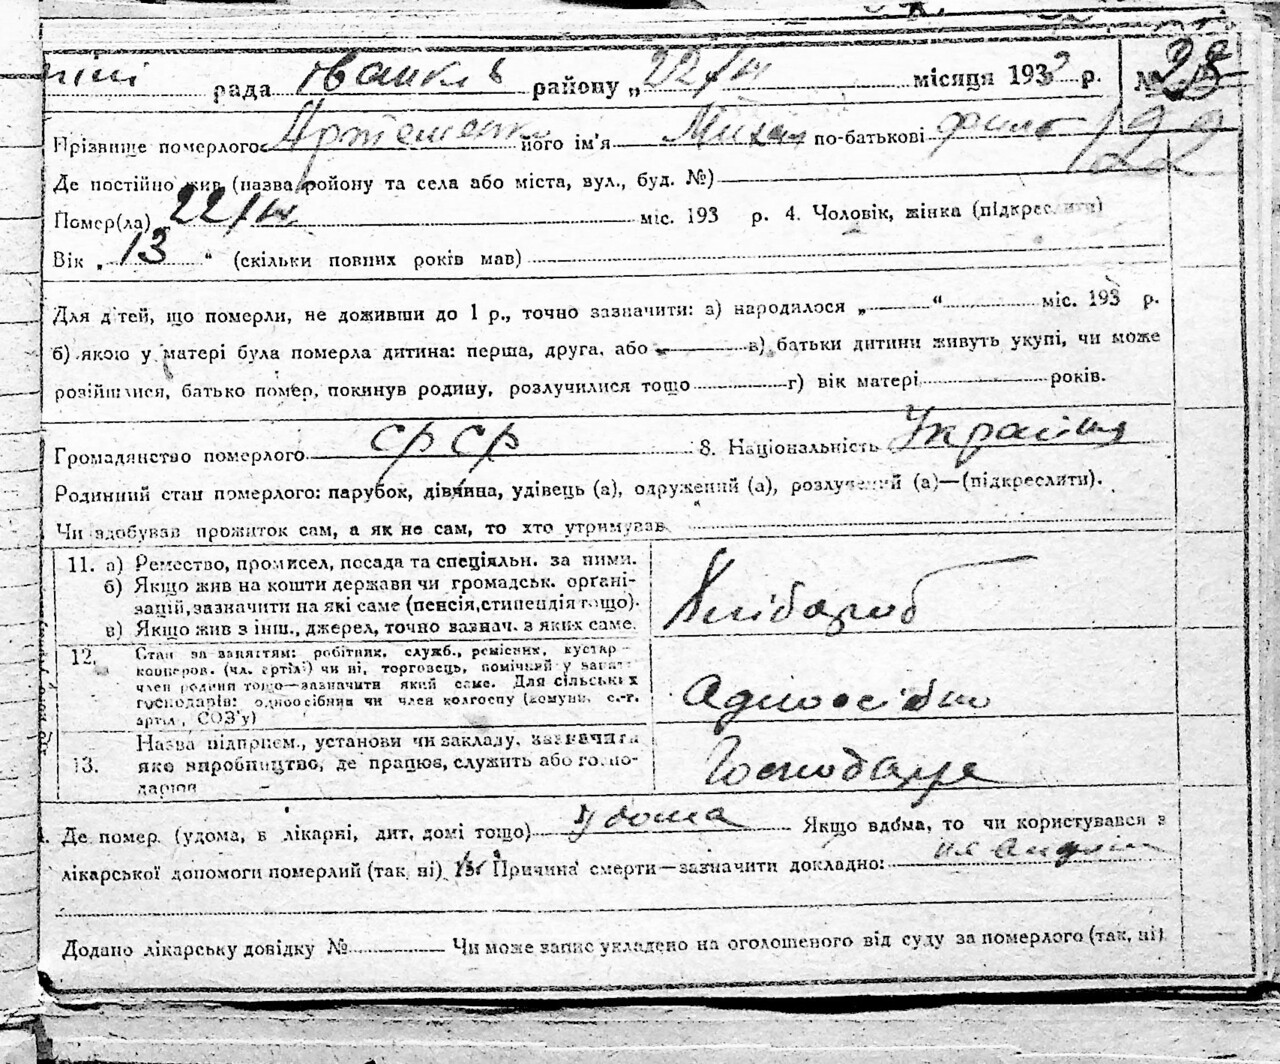 рада Іванків району „22/III місяця 1933 р. № 28
122
Прізвище померлого Артеменко його ім'я Михай по-батькові Филю
Де постійно жив (назва району та села або міста, вул., буд. №)
Помер(ла) 22/III міс. 193 р. 4. Чоловік, жінка (підкреслити)
Вік „13“ (скільки повних років мав)
Для дітей, що померли, не доживши до 1 р., точно зазначити: а) народилося „ “ міс. 193 р.
б) якою у матері була померла дитина: перша, друга, або в) батьки дитини живуть укупі, чи може
розійшлися, батько помер, покинув родину, розлучилися тощо г) вік матері років.
Громадянство померлого СРСР 8. Національність Україц
Родинний стан померлого: парубок, дівчина, удівець (а), одружений (а), розлучений (а)—(підкреслити).
Чи здобував прожиток сам, а як не сам, то хто утримував
11. а) Ремество, промисел, посада та спеціяльн. за ними.
б) Якщо жив на кошти держави чи громадськ. органі-
зацій, зазначити на які саме (пенсія, стипендія тощо).
в) Якщо жив з інш., джерел, точно зазнач. з яких саме.
Хлібороб
12. Стан за заняттям: робітник, служб., ремісник, кустар-
кооперов. (чл. артілі) чи ні, торговець, помічний у
член родини тощо—зазначити який саме. Для сільських
господарів: одноосібник чи член колгоспу (комуни, с.-г.
артіл, СОЗ'у)
Адноосібно
13. Назва підприєм., установи чи закладу, зазначити
яке виробництво, де працює, служить або госпо-
дарює
Господарує
Де помер. (удома, в лікарні, дит. домі тощо) удома Якщо вдома, то чи користувався з
лікарської допомоги померлий (так, ні) Причина смерти—зазначити докладно:
Додано лікарську довідку № Чи може запис укладено на оголошеного від суду за померлого (так, ні)